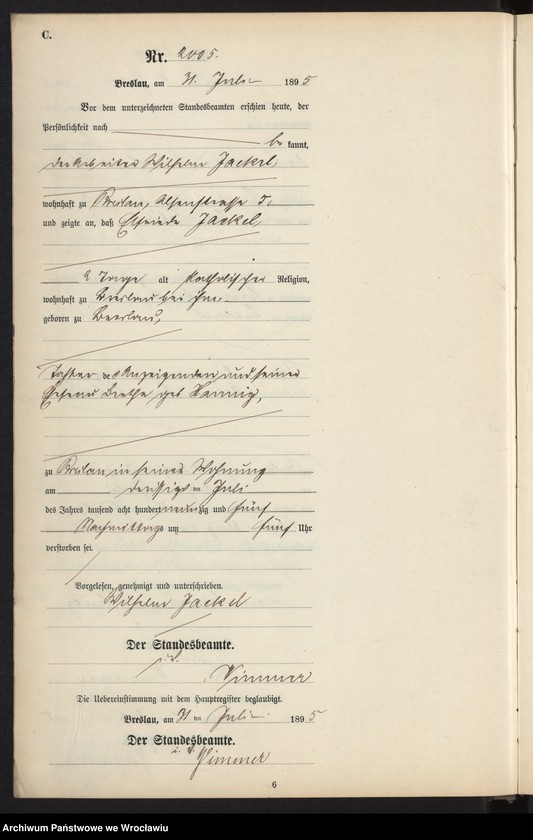 C.
Nr. 2005.
Breslau, am 31. Juli 1895
Vor dem unterzeichneten Standesbeamten erschien heute, der
Persönlichkeit nach
be kannt,
der Arbeiter Wilhelm Jackel,
wohnhaft zu Breslau, Alsenstrasse 5.
und zeigte an, daß Elfriede Jackel,
2 Tage alt katholischer Religion,
wohnhaft zu Breslau bei ihm
geboren zu Breslau,
Tochter des Anzeigenden und seiner
Ehefrau geb Hannig,
zu Breslau in seiner Wohnung
am dreißigsten Juli
des Jahres tausend acht hundert neunzig und fünf
Nachmittags um fünf Uhr
verstorben sei.
Vorgelesen, genehmigt und unterschrieben.
Wilhelm Jackel
Der Standesbeamte.
i. V.
Die Uebereinstimmung mit dem Hauptregister beglaubigt.
Breslau, am 31 ten Juli 1895
Der Standesbeamte.
i. V.
6
Archiwum Państwowe we Wrocławiu